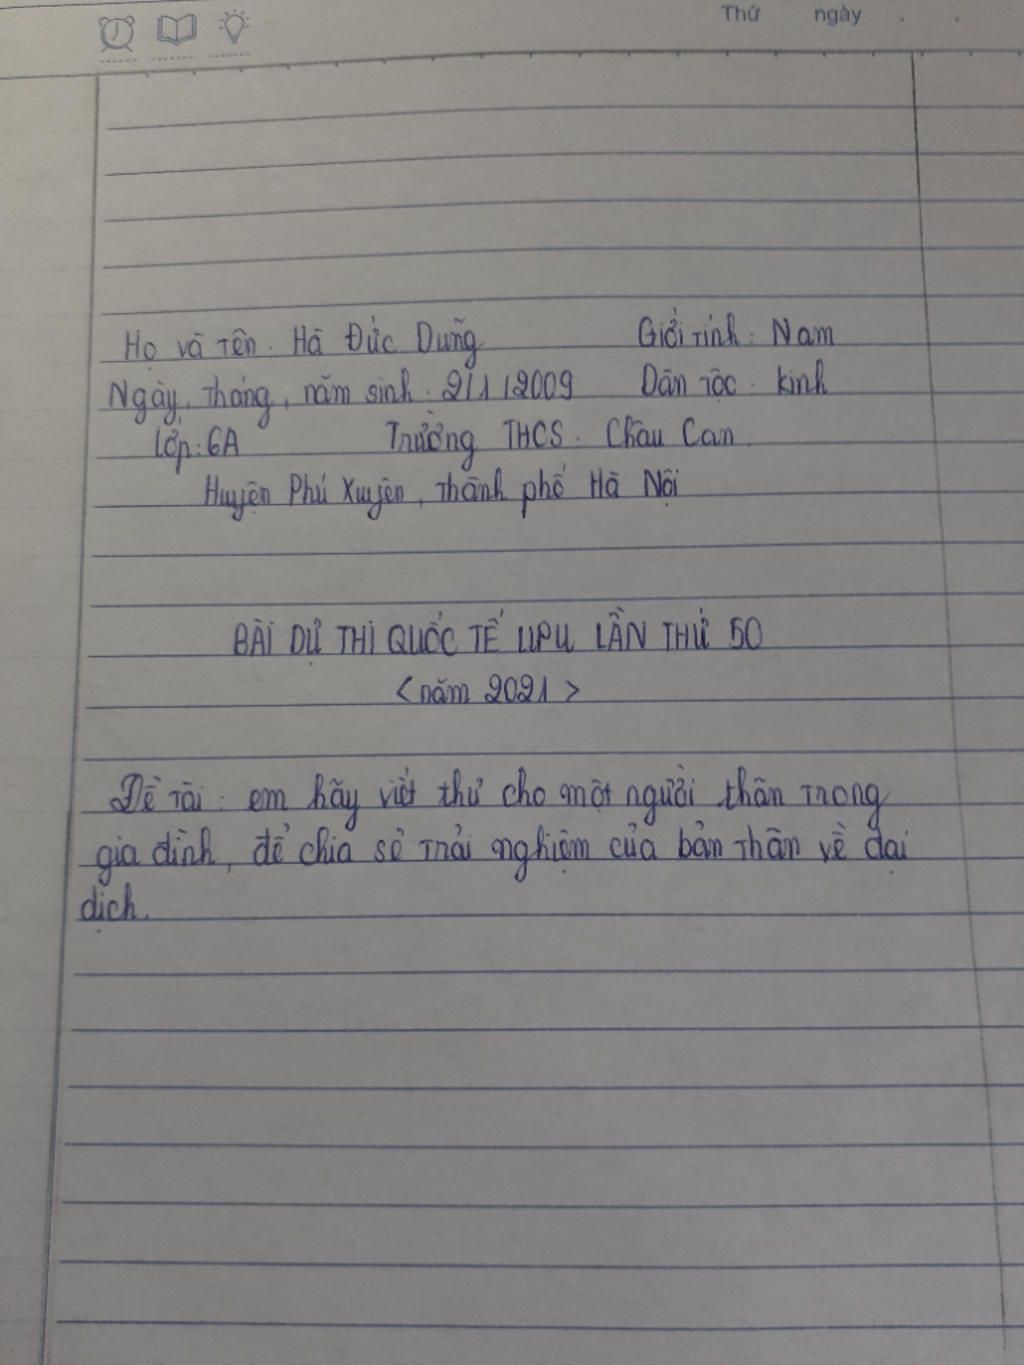 Thứ ngày . .
Họ và tên. Hà Đức Dũng Giới tính: Nam
Ngày, tháng, năm sinh. 2/1/2009 Dân tộc. kinh
Lớp: 6A Trường THCS. Châu Can.
Huyện Phú Xuyên, thành phố Hà Nội
BÀI DỰ THI QUỐC TẾ UPU LẦN THỨ 50
<năm 2021>
Đề tài: em hãy viết thư cho một người thân trong
gia đình, để chia sẻ trải nghiệm của bản thân về đại
dịch.